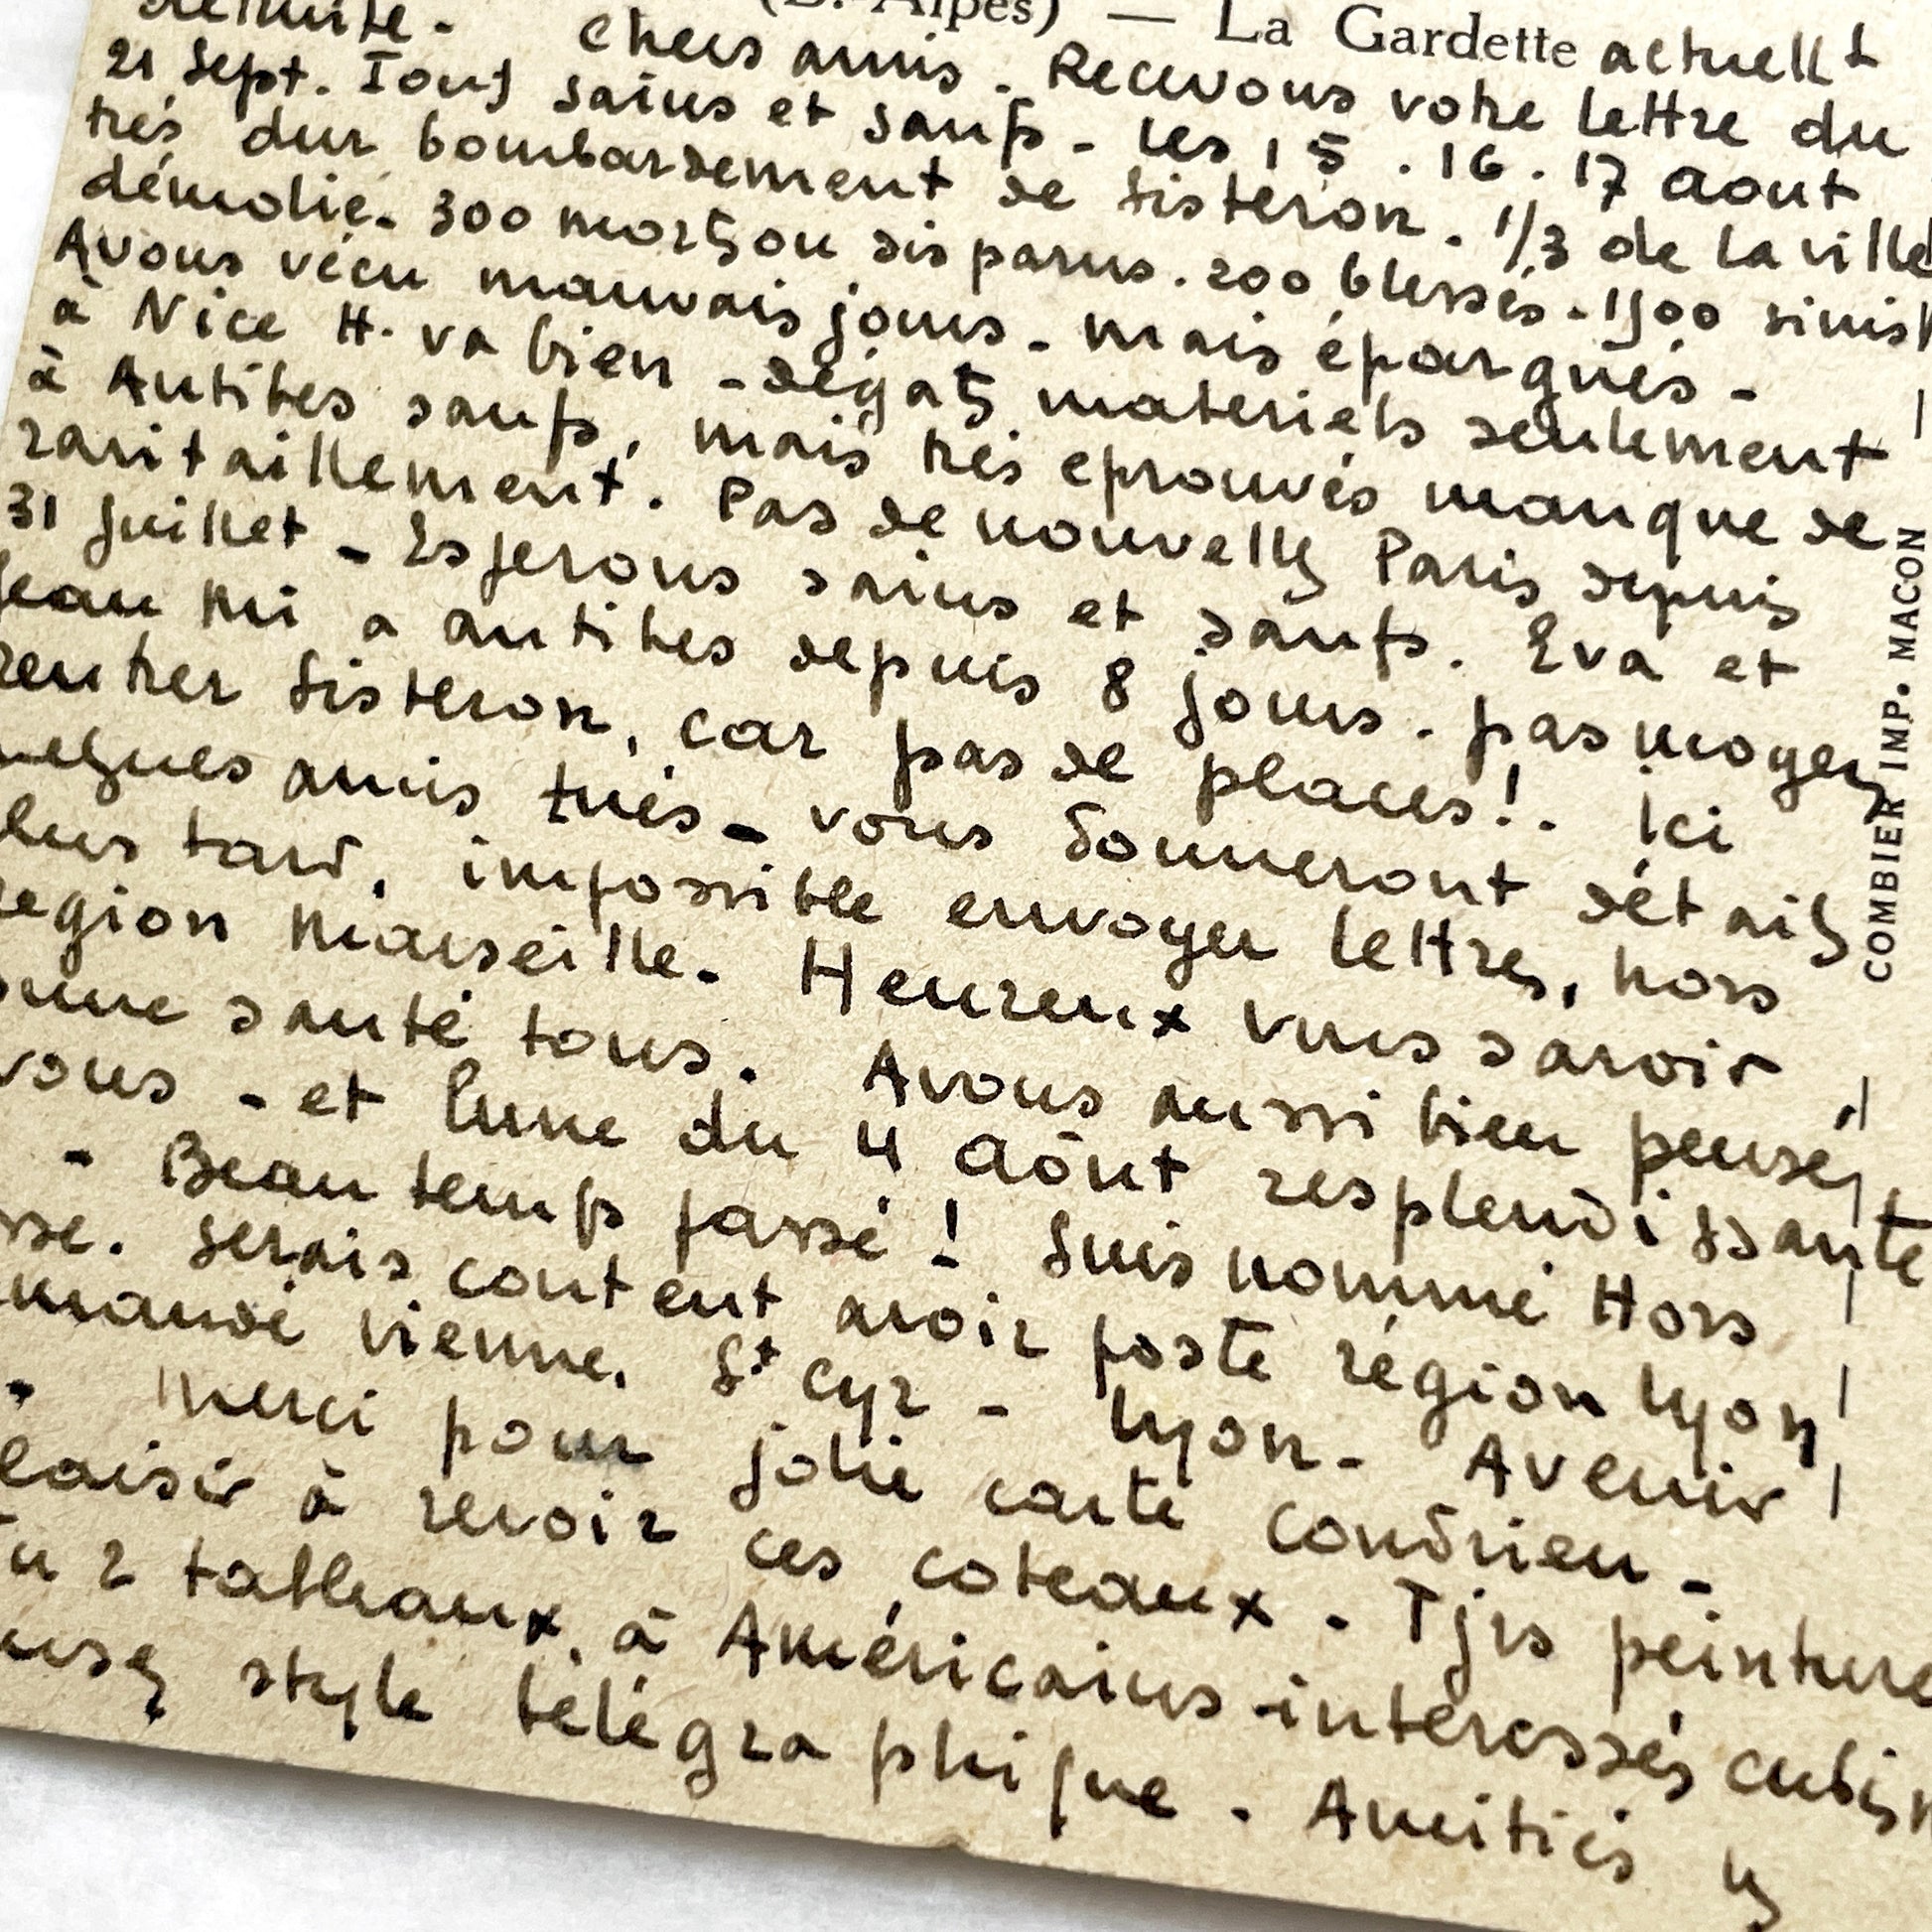 (B. Alpes) — La Gardette actuellt
détruite - Chers amis. Recevons votre lettre du
21 Sept. Tous sains et saufs - Les 15 . 16 . 17 Aout
trés dur bombardement de Sisteron. 1/3 de la ville
démolie. 300 morts ou disparus. 200 blessés - 1500 sinist
Avons vécu mauvais jours - mais épargnés -
à Nice H. va bien - dégats materiels seulement
à Antibes saufs, mais trés eprouvés manque de
ravitaillement. Pas de nouvelles Paris depuis
31 Juillet - Esperons sains et saufs. Eva et
Jean Mi a antibes depuis 8 jours. pas moyen
rentrer Sisteron, car pas de places!. Ici
uelques amis tués - vous donneront détails
lus tard, impossible envoyer lettres, hors
region Marseille. Heureux vous savoir
onne santé tous. Avons aussi bien pensé
vous - et lune du 4 Aôut resplendissante
- Beau temps passé ! Suis nommé Hors
sse. Serais content avoir poste région Lyon
emandé Vienne. St Cyr - Lyon - Avenir
. Merci pour jolie carte Condrieu -
laisir à revoir ces coteaux. Tjrs peinture
u 2 tableaux, à Américains - interessés cubis
usez style télégraphique. Amitiés
COMBIER IMP. MACON